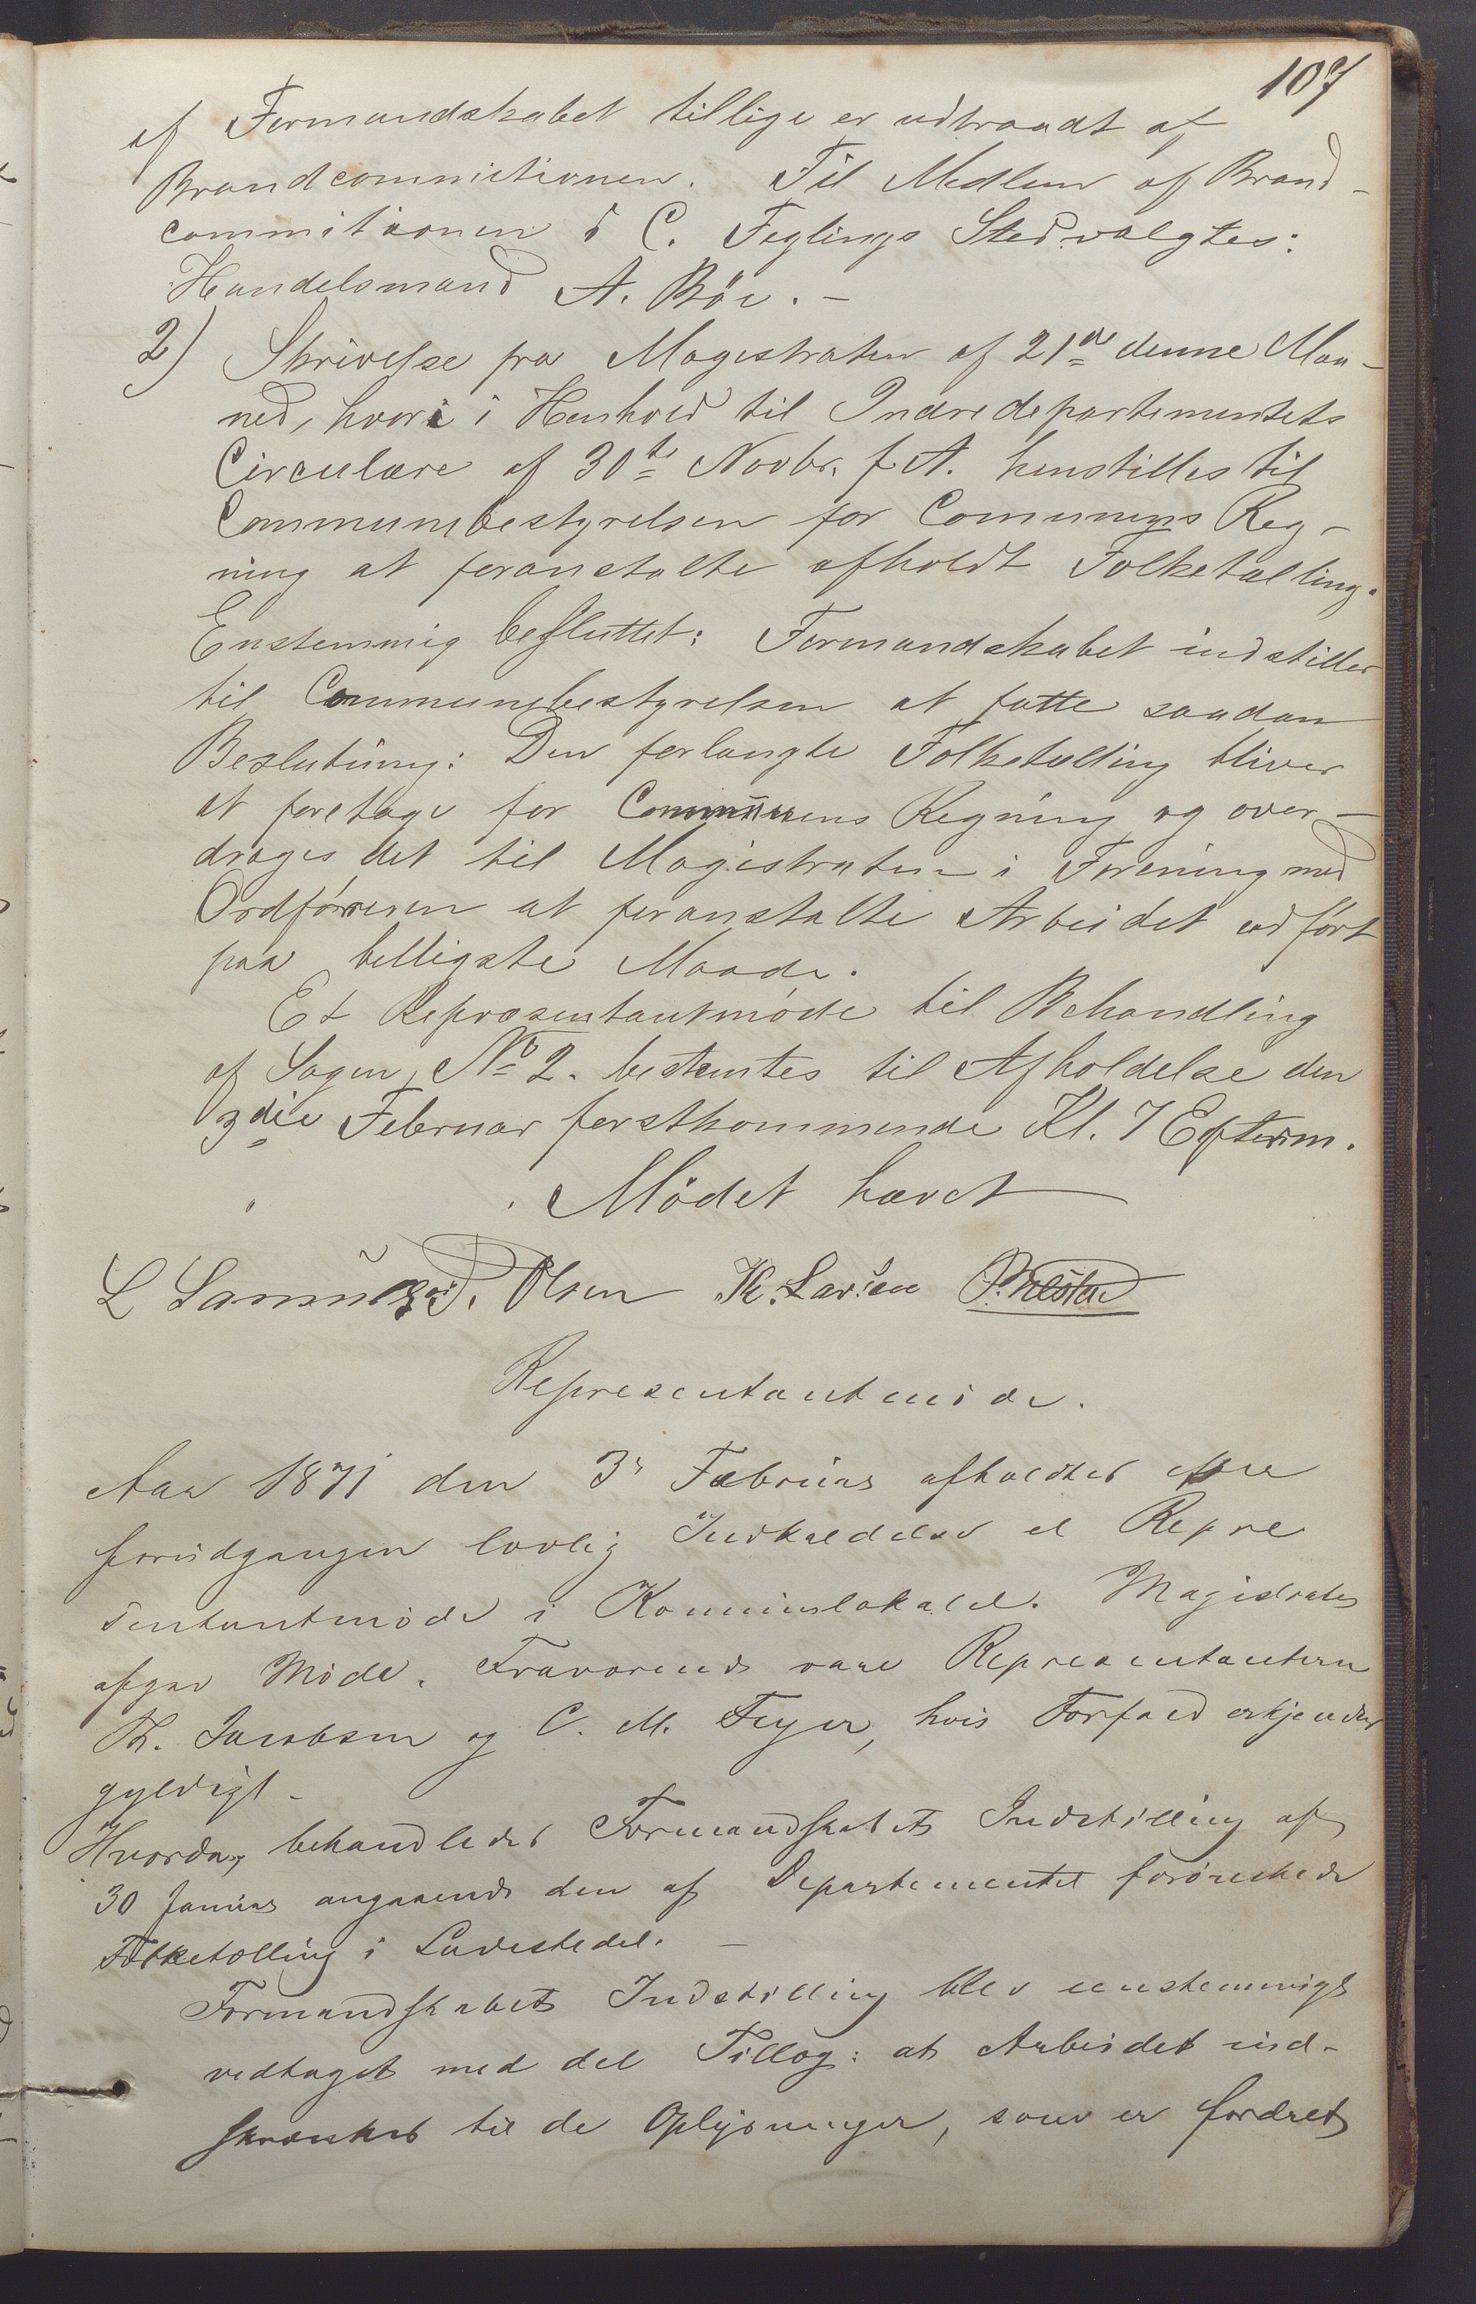 107
af Formandskabet tillige er udtraadt af
Brandcommitionen. Til Medlem af Brand-
commitionen i C. Feylings Sted valgtes:
Handelsmand A. Böe. -
2) Skrivelse fra Magistraten af 21de denne Maa-
ned, hvori i Henhold til Indredepartementets
Circulære af 30te Novbr. f. A. henstilles til
Communebestyrelsen for Comunens Reg-
ning at foranstalte afholdt Folketælling.
Enstemmig besluttet: Formandskabet indstiller
til Communebestyrelsen at fatte saadan
Beslutning: Den forlangte Folketælling bliver
at foretage for Communens Regning og over-
drages det til Magistraten i Forening med
Ordföreren at foranstalte Arbeidet udført
paa billigste Maade.
Et Repræsentantmøde til Behandling
af Sagen No 2. bestemtes til Afholdelse den
3die Februar førstkommende Kl. 7 Efterm.
Mödet hævet
L Samuelsen P. Olsen K. Larsen
Representantmöde.
Aar 1871 den 3e Februar afholdtes efter
forudgangen lovlig Indkaldelse et Repre
sentantmöde i Kommunelokalet. Magistraten
afgav Möde. Fraværende vare Representanterne
Th. Jacobsen og C. M. Feyer, hvis Forfald erkjendtes
gyldigt -
Hvorda behandledes Formandskabets Indstilling af
30 Januar angaaende den af Departementet forönskede
Folketælling i Ladestedet. -
Formandskabets Indstilling blev eenstemmigt
vedtaget med det Tillæg: at Arbeidet ind-
skrænkes til de Oplysninger, som er fordret